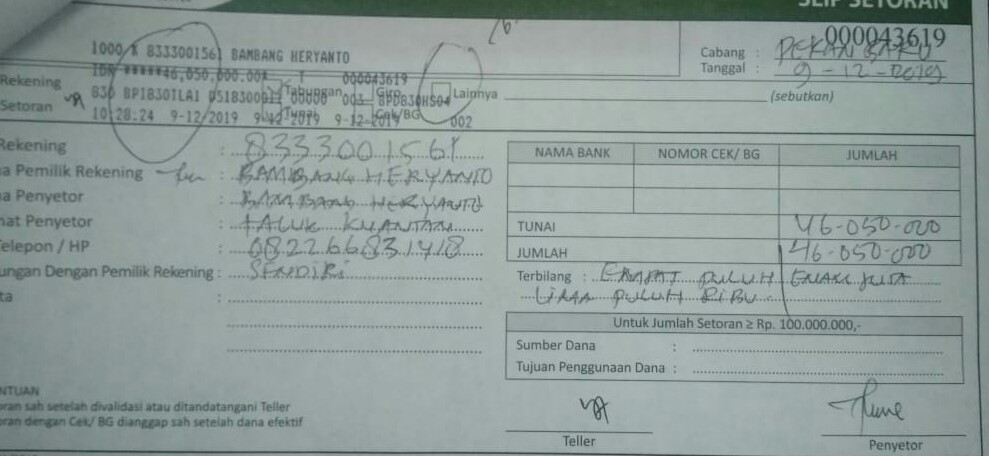 SLIP SETORAN
000043619
1000 % 8333001561 BAMBANG HERYANTO
Cabang : PEKAN BARU
Tanggal : 9-12-2019
IDR ******46,050,000.00* T 000043619
Rekening
Tabungan Giro Lainnya
(sebutkan)
Setoran
Tunai Cek/BG
10:28:24 9-12/2019 9-12-2019 9-12-2019 002
Rekening : 8333001561
a Pemilik Rekening : BAMBANG HERYANTO
a Penyetor : BAMBANG HERYANTO
mat Penyetor : TALUK KUANTAN
elepon / HP : 082266831418
ungan Dengan Pemilik Rekening : SENDIRI
ta :
NAMA BANK NOMOR CEK/ BG JUMLAH
TUNAI 46-050-000
JUMLAH 46-050-000
Terbilang : EMPAT PULUH ENAM JUTA
LIMA PULUH RIBU
Untuk Jumlah Setoran ≥ Rp. 100.000.000,-
Sumber Dana :
Tujuan Penggunaan Dana :
NTUAN
oran sah setelah divalidasi atau ditandatangani Teller
oran dengan Cek/ BG dianggap sah setelah dana efektif
Teller
Penyetor